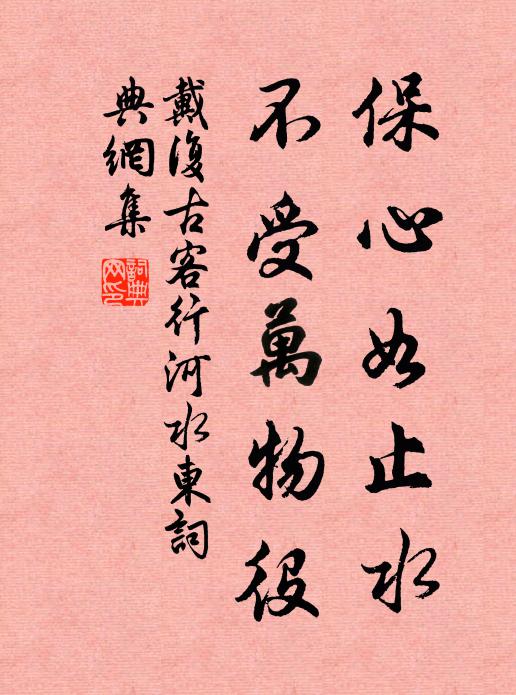 保心如止水
不受萬物役
戴復古客行河水東詞
典網集
詞典
网印